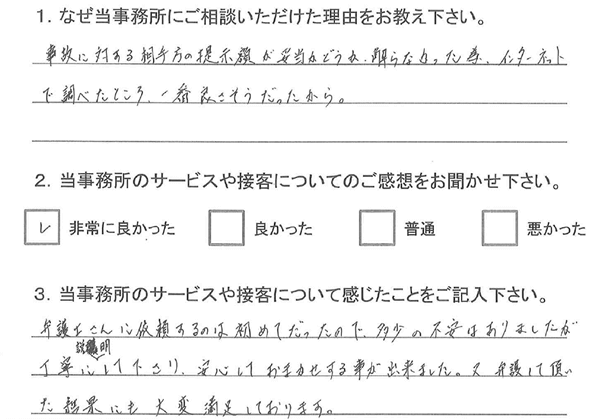 1. なぜ当事務所にご相談いただけた理由をお教え下さい。
事故に対する相手方の提示額が妥当かどうか、解らなかった為、インターネット
で調べたところ、一番良さそうだったから。
2. 当事務所のサービスや接客についてのご感想をお聞かせ下さい。
レ 非常に良かった 良かった 普通 悪かった
3. 当事務所のサービスや接客について感じたことをご記入下さい。
弁護士さんに依頼するのは初めてだったので、多少の不安はありましたが
丁寧に説明して下さり、安心しておまかせする事が出来ました。又 弁護して頂い
た結果にも大変満足しております。